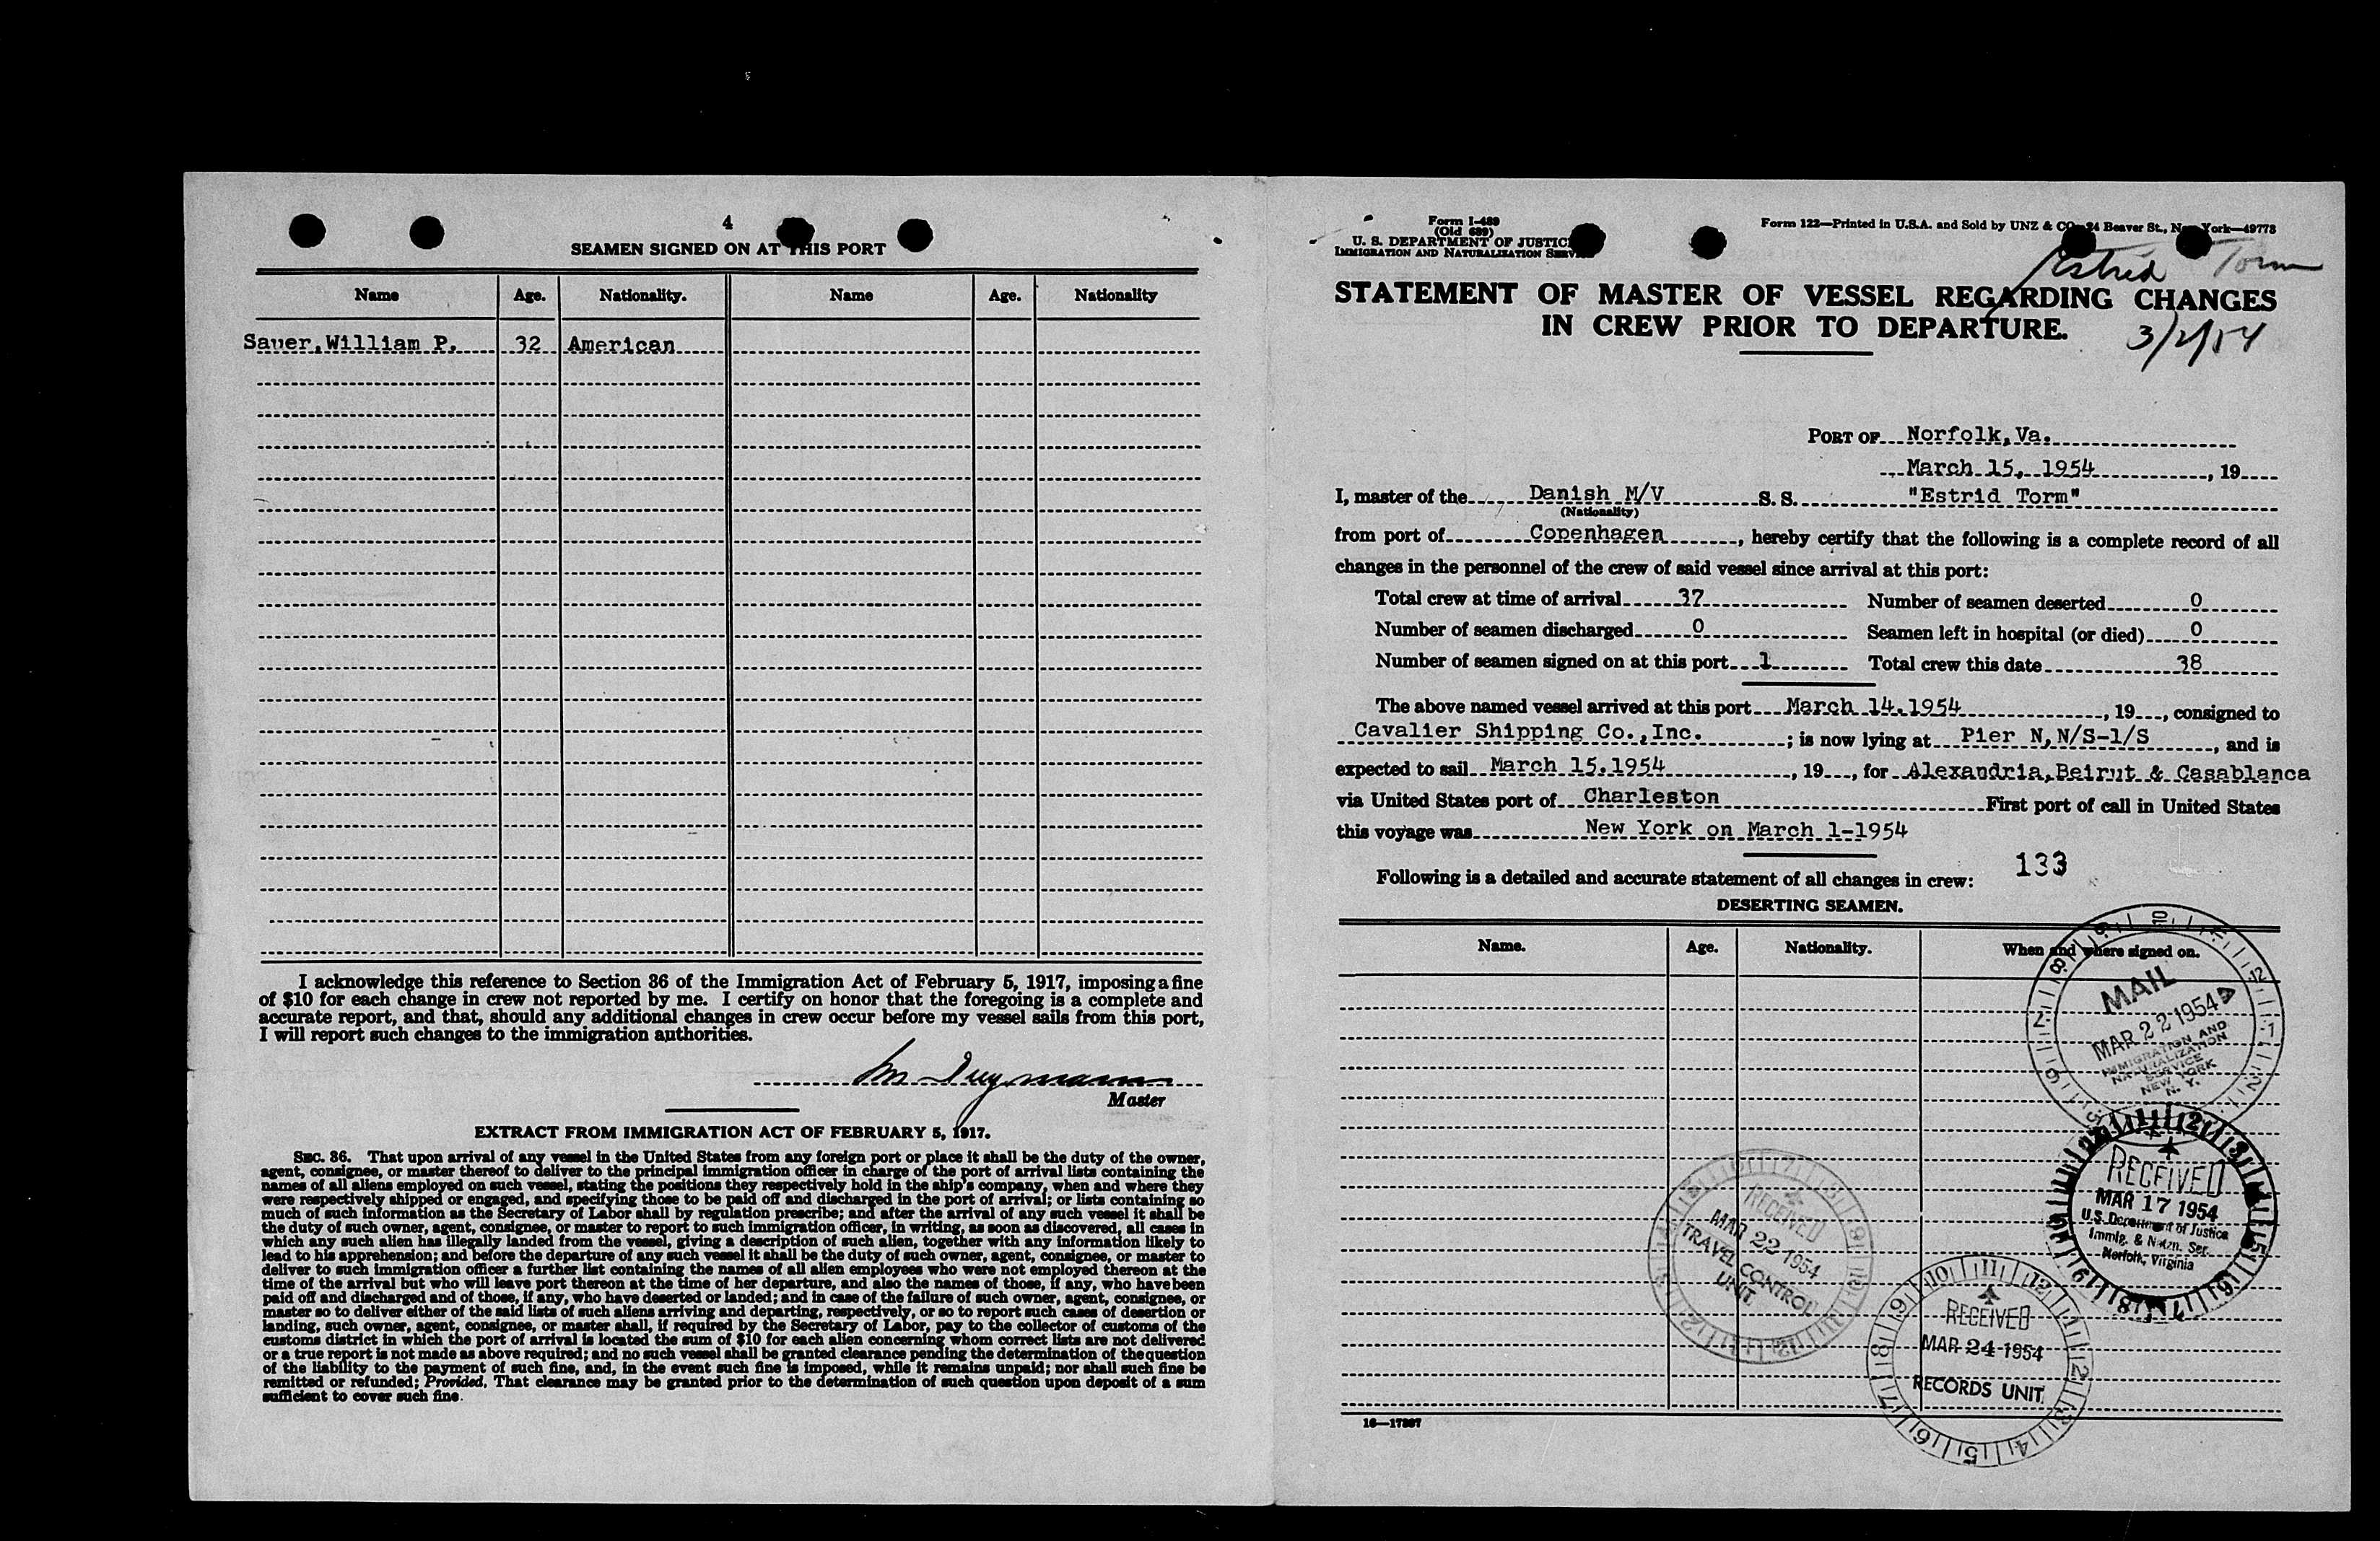 4
SEAMEN SIGNED ON AT THIS PORT
Name Age. Nationality. Name Age. Nationality
Sauer,William P. 32 American
I acknowledge this reference to Section 36 of the Immigration Act of February 5, 1917, imposing a fine
of $10 for each change in crew not reported by me. I certify on honor that the foregoing is a complete and
accurate report, and that, should any additional changes in crew occur before my vessel sails from this port,
I will report such changes to the immigration authorities.
Master
EXTRACT FROM IMMIGRATION ACT OF FEBRUARY 5, 1917.
SEC. 36. That upon arrival of any vessel in the United States from any foreign port or place it shall be the duty of the owner,
agent, consignee, or master thereof to deliver to the principal immigration officer in charge of the port of arrival lists containing the
names of all aliens employed on such vessel, stating the positions they respectively hold in the ship's company, when and where they
were respectively shipped or engaged, and specifying those to be paid off and discharged in the port of arrival; or lists containing so
much of such information as the Secretary of Labor shall by regulation prescribe; and after the arrival of any such vessel it shall be
the duty of such owner, agent, consignee, or master to report to such immigration officer, in writing, as soon as discovered, all cases in
which any such alien has illegally landed from the vessel, giving a description of such alien, together with any information likely to
lead to his apprehension; and before the departure of any such vessel it shall be the duty of such owner, agent, consignee, or master to
deliver to such immigration officer a further list containing the names of all alien employees who were not employed thereon at the
time of the arrival but who will leave port thereon at the time of her departure, and also the names of those, if any, who have been
paid off and discharged and of those, if any, who have deserted or landed; and in case of the failure of such owner, agent, consignee, or
master so to deliver either of the said lists of such aliens arriving and departing, respectively, or so to report such cases of desertion or
landing, such owner, agent, consignee, or master shall, if required by the Secretary of Labor, pay to the collector of customs of the
customs district in which the port of arrival is located the sum of $10 for each alien concerning whom correct lists are not delivered
or a true report is not made as above required; and no such vessel shall be granted clearance pending the determination of the question
of the liability to the payment of such fine, and, in the event such fine is imposed, while it remains unpaid; nor shall such fine be
remitted or refunded; Provided, That clearance may be granted prior to the determination of such question upon deposit of a sum
sufficient to cover such fine.
Form I-489
(Old 689)
U. S. DEPARTMENT OF JUSTICE
IMMIGRATION AND NATURALIZATION SERVICE
Form 122—Printed in U.S.A. and Sold by UNZ & CO 24 Beaver St., New York—49773
Estrid Torm
STATEMENT OF MASTER OF VESSEL REGARDING CHANGES
IN CREW PRIOR TO DEPARTURE.
PORT OF Norfolk,Va.
March 15, 1954, 19
I, master of the Danish M/V S. S. "Estrid Torm"
(Nationality)
from port of Copenhagen, hereby certify that the following is a complete record of all
changes in the personnel of the crew of said vessel since arrival at this port:
Total crew at time of arrival 37 Number of seamen deserted 0
Number of seamen discharged 0 Seamen left in hospital (or died) 0
Number of seamen signed on at this port 1 Total crew this date 38
The above named vessel arrived at this port March 14.1954, 19, consigned to
Cavalier Shipping Co.,Inc.; is now lying at Pier N,N/S-1/S, and is
expected to sail March 15.1954, 19, for Alexandria,Beirut & Casablanca
via United States port of Charleston First port of call in United States
this voyage was New York on March 1-1954
133
Following is a detailed and accurate statement of all changes in crew:
DESERTING SEAMEN.
Name. Age. Nationality. When and where signed on.
MAIL
MAR 22 1954
IMMIGRATION AND
NATURALIZATION
SERVICE
NEW YORK
N. Y.
RECEIVED
MAR 17 1954
U.S. Department of Justice
Immig. & Natzn. Ser.
Norfolk, Virginia
RECEIVED
MAR 22 1954
TRAVEL CONTROL
UNIT
RECEIVED
MAR 24 1954
RECORDS UNIT
16—17397